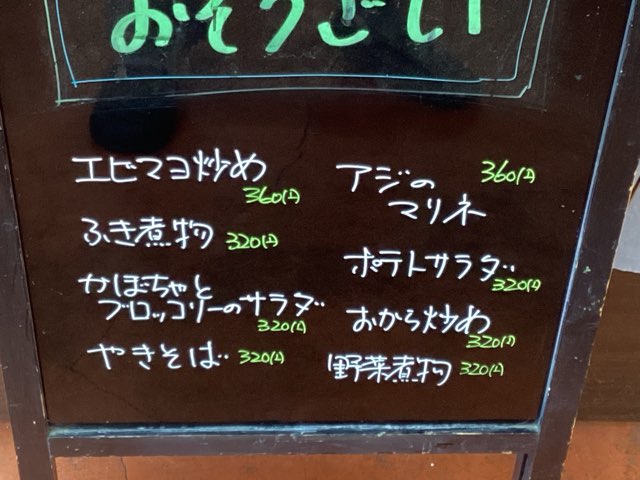 おそうざい
エビマヨ炒め
360(円)
ふき煮物 320(円)
かぼちゃと
ブロッコリーのサラダ
320(円)
やきそば 320(円)
アジの 360(円)
マリネ
ポテトサラダ
320(円)
おから炒め
320(円)
野菜煮物 320(円)